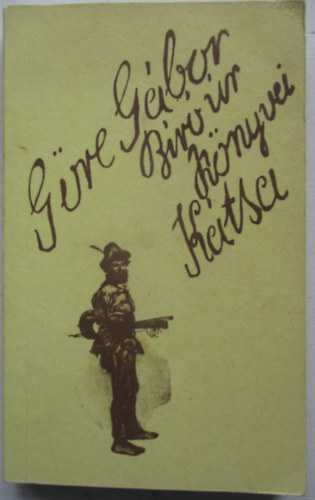 Göre Gábor
Biró úr
Könyvei
Kátsa